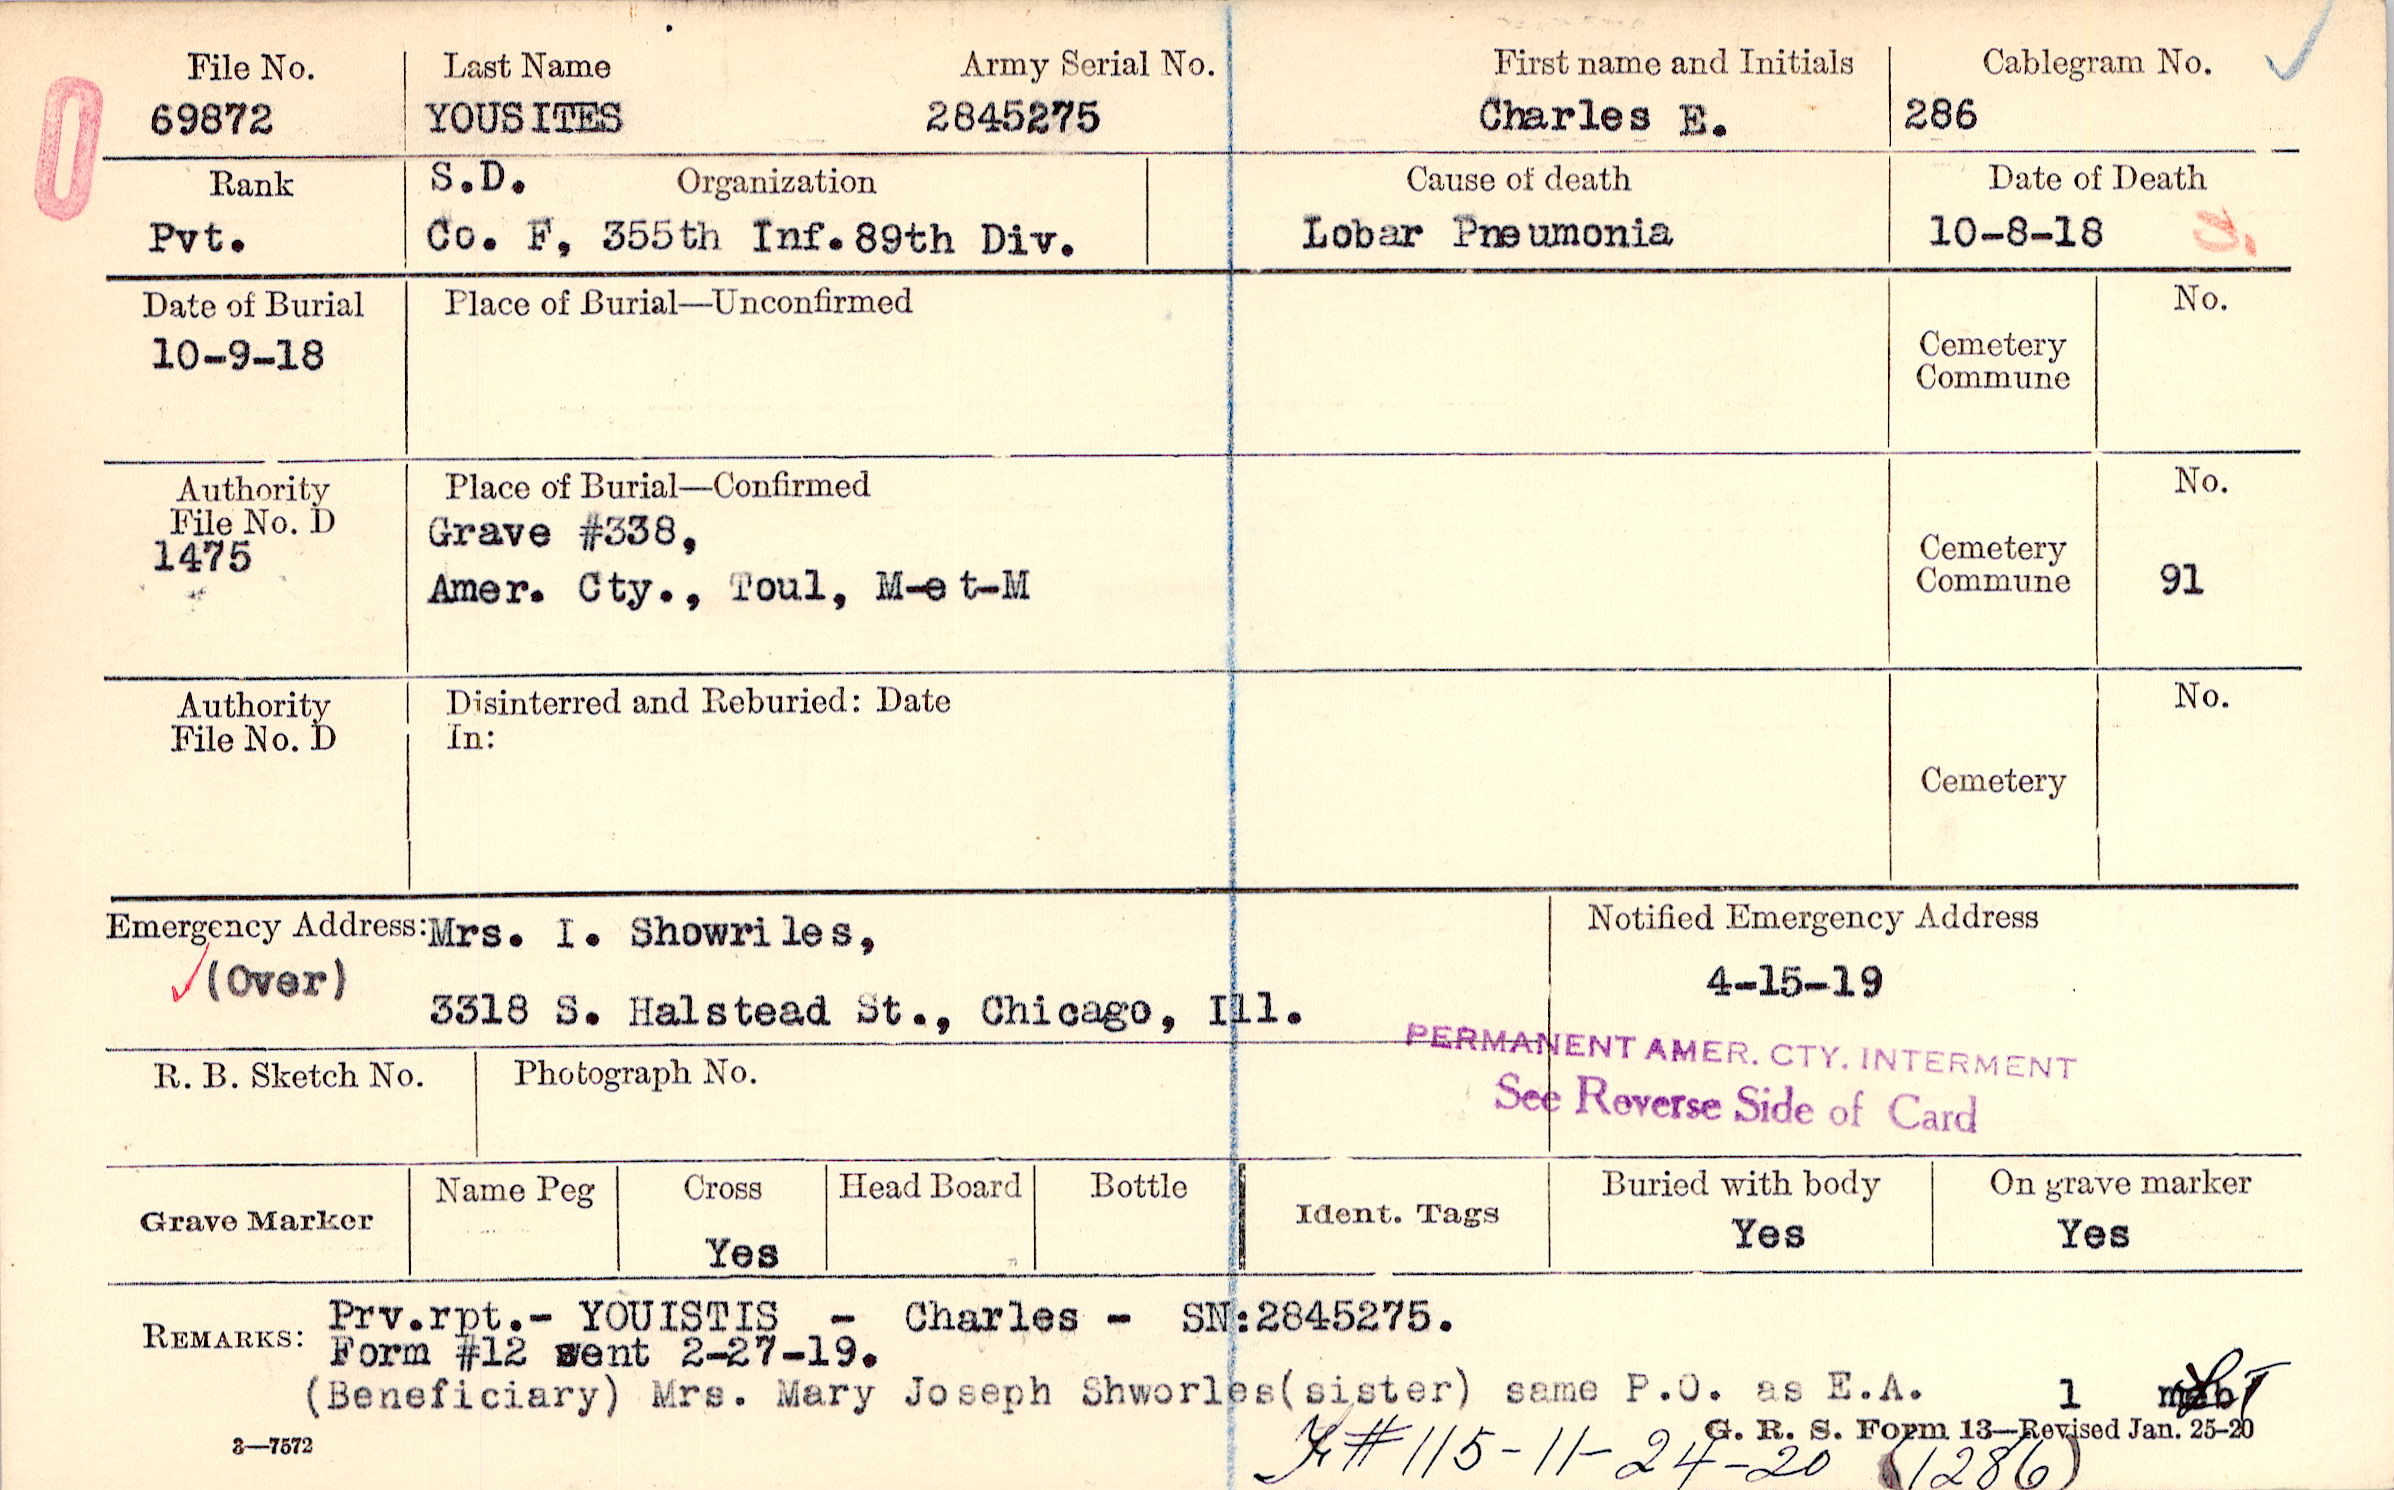 File No. Last Name Army Serial No. First name and Initials Cablegram No.
69872 YOUSITES 2845275 Charles E. 286
Rank S.D. Organization Cause of death Date of Death
Pvt. Co. F, 355th Inf. 89th Div. Lobar Pneumonia 10-8-18
Date of Burial Place of Burial—Unconfirmed No.
10-9-18
Cemetery
Commune
Authority Place of Burial—Confirmed No.
File No. D Grave #338,
1475 Cemetery
Amer. Cty., Toul, M-et-M Commune 91
Authority Disinterred and Reburied: Date No.
File No. D In:
Cemetery
Emergency Address: Mrs. I. Showriles, Notified Emergency Address
(Over) 4-15-19
3318 S. Halstead St., Chicago, Ill.
PERMANENT AMER. CTY. INTERMENT
R. B. Sketch No. Photograph No.
See Reverse Side of Card
Grave Marker Name Peg Cross Head Board Bottle Ident. Tags Buried with body On grave marker
Yes Yes Yes
REMARKS: Prv.rpt.- YOUISTIS - Charles - SN:2845275.
Form #12 sent 2-27-19.
(Beneficiary) Mrs. Mary Joseph Shworles(sister) same P.O. as E.A. 1
3—7572 G. R. S. Form 13—Revised Jan. 25-20
#115-11-24-20 (1286)